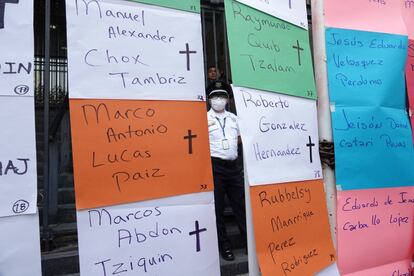 DIN
78
AJ
78
Manuel
Alexander
Chox
Tambriz
Marco
Antonio
Lucas
Paiz
Marcos
Abdon
Tziquin
Raymundo
Quib
Tzalam
Roberto
Gonzalez
Hernandez
Rubbelsy
Manrrique
Perez
Rodriguez
Jesús Eduardo
Velasquez
Perdomo
Cotari Rivas
Eduardo de Jesu
Carballo López